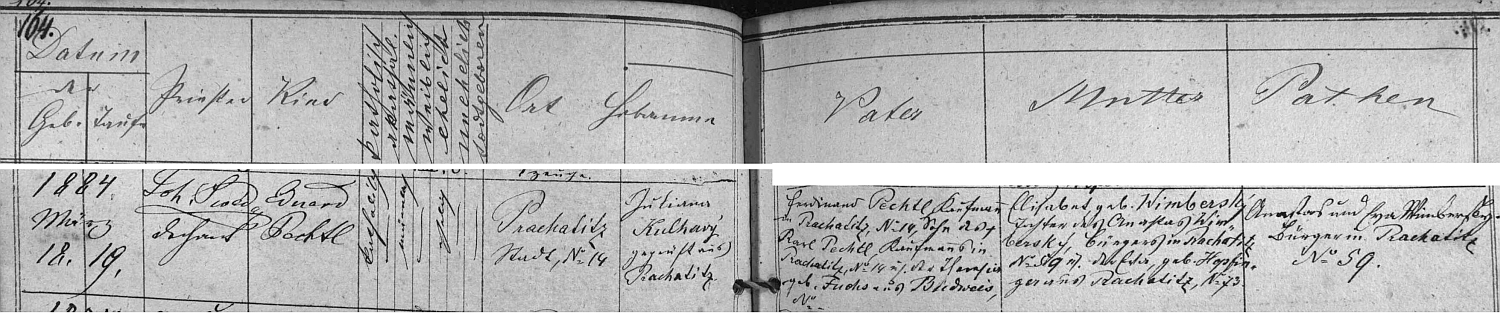 164.
Datum
der
Geb. Taufe
Priester
Kind
katholisch
akathol.
männlich
weiblich
ehelich
unehelich
todgeboren
Ort
Hebamme
Vater
Mutter
Pathen
1884.
März
18. 19.
Joh.
Dechant
Pechtl
katholisch
männlich
ehelich
Prachatitz
Stadt, No 14
Juliana
Kulhavý
geprüft aus
Prachatitz
Ferdinand Pechtl Kaufmann
in Prachatitz, No 14, Sohn des
Karl Pechtl, Kaufmanns in
Prachatitz, No 14 u. der Theresia
geb. Fuchs aus Budweis,
No
Elisabet, geb. Wimbersky
Tochter des Anastas Wim-
bersky, Bürgers in Prachatitz
No 59 u. der Eva, geb. Hopfin-
ger aus Prachatitz, No 73
Anastas und Eva Wimbersky
Bürger in Prachatitz
No 59.